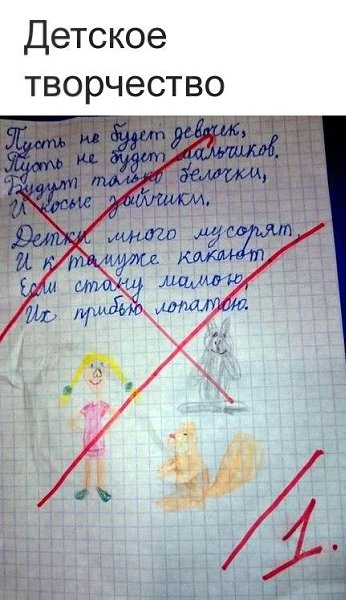 Детское
творчество
Пусть не будет девочек,
Пусть не будет мальчиков.
Будут только белочки,
И косые зайчики.
Детки много мусорят,
И к томуже какают.
Если стану мамою,
Их прибью лопатою.
1.